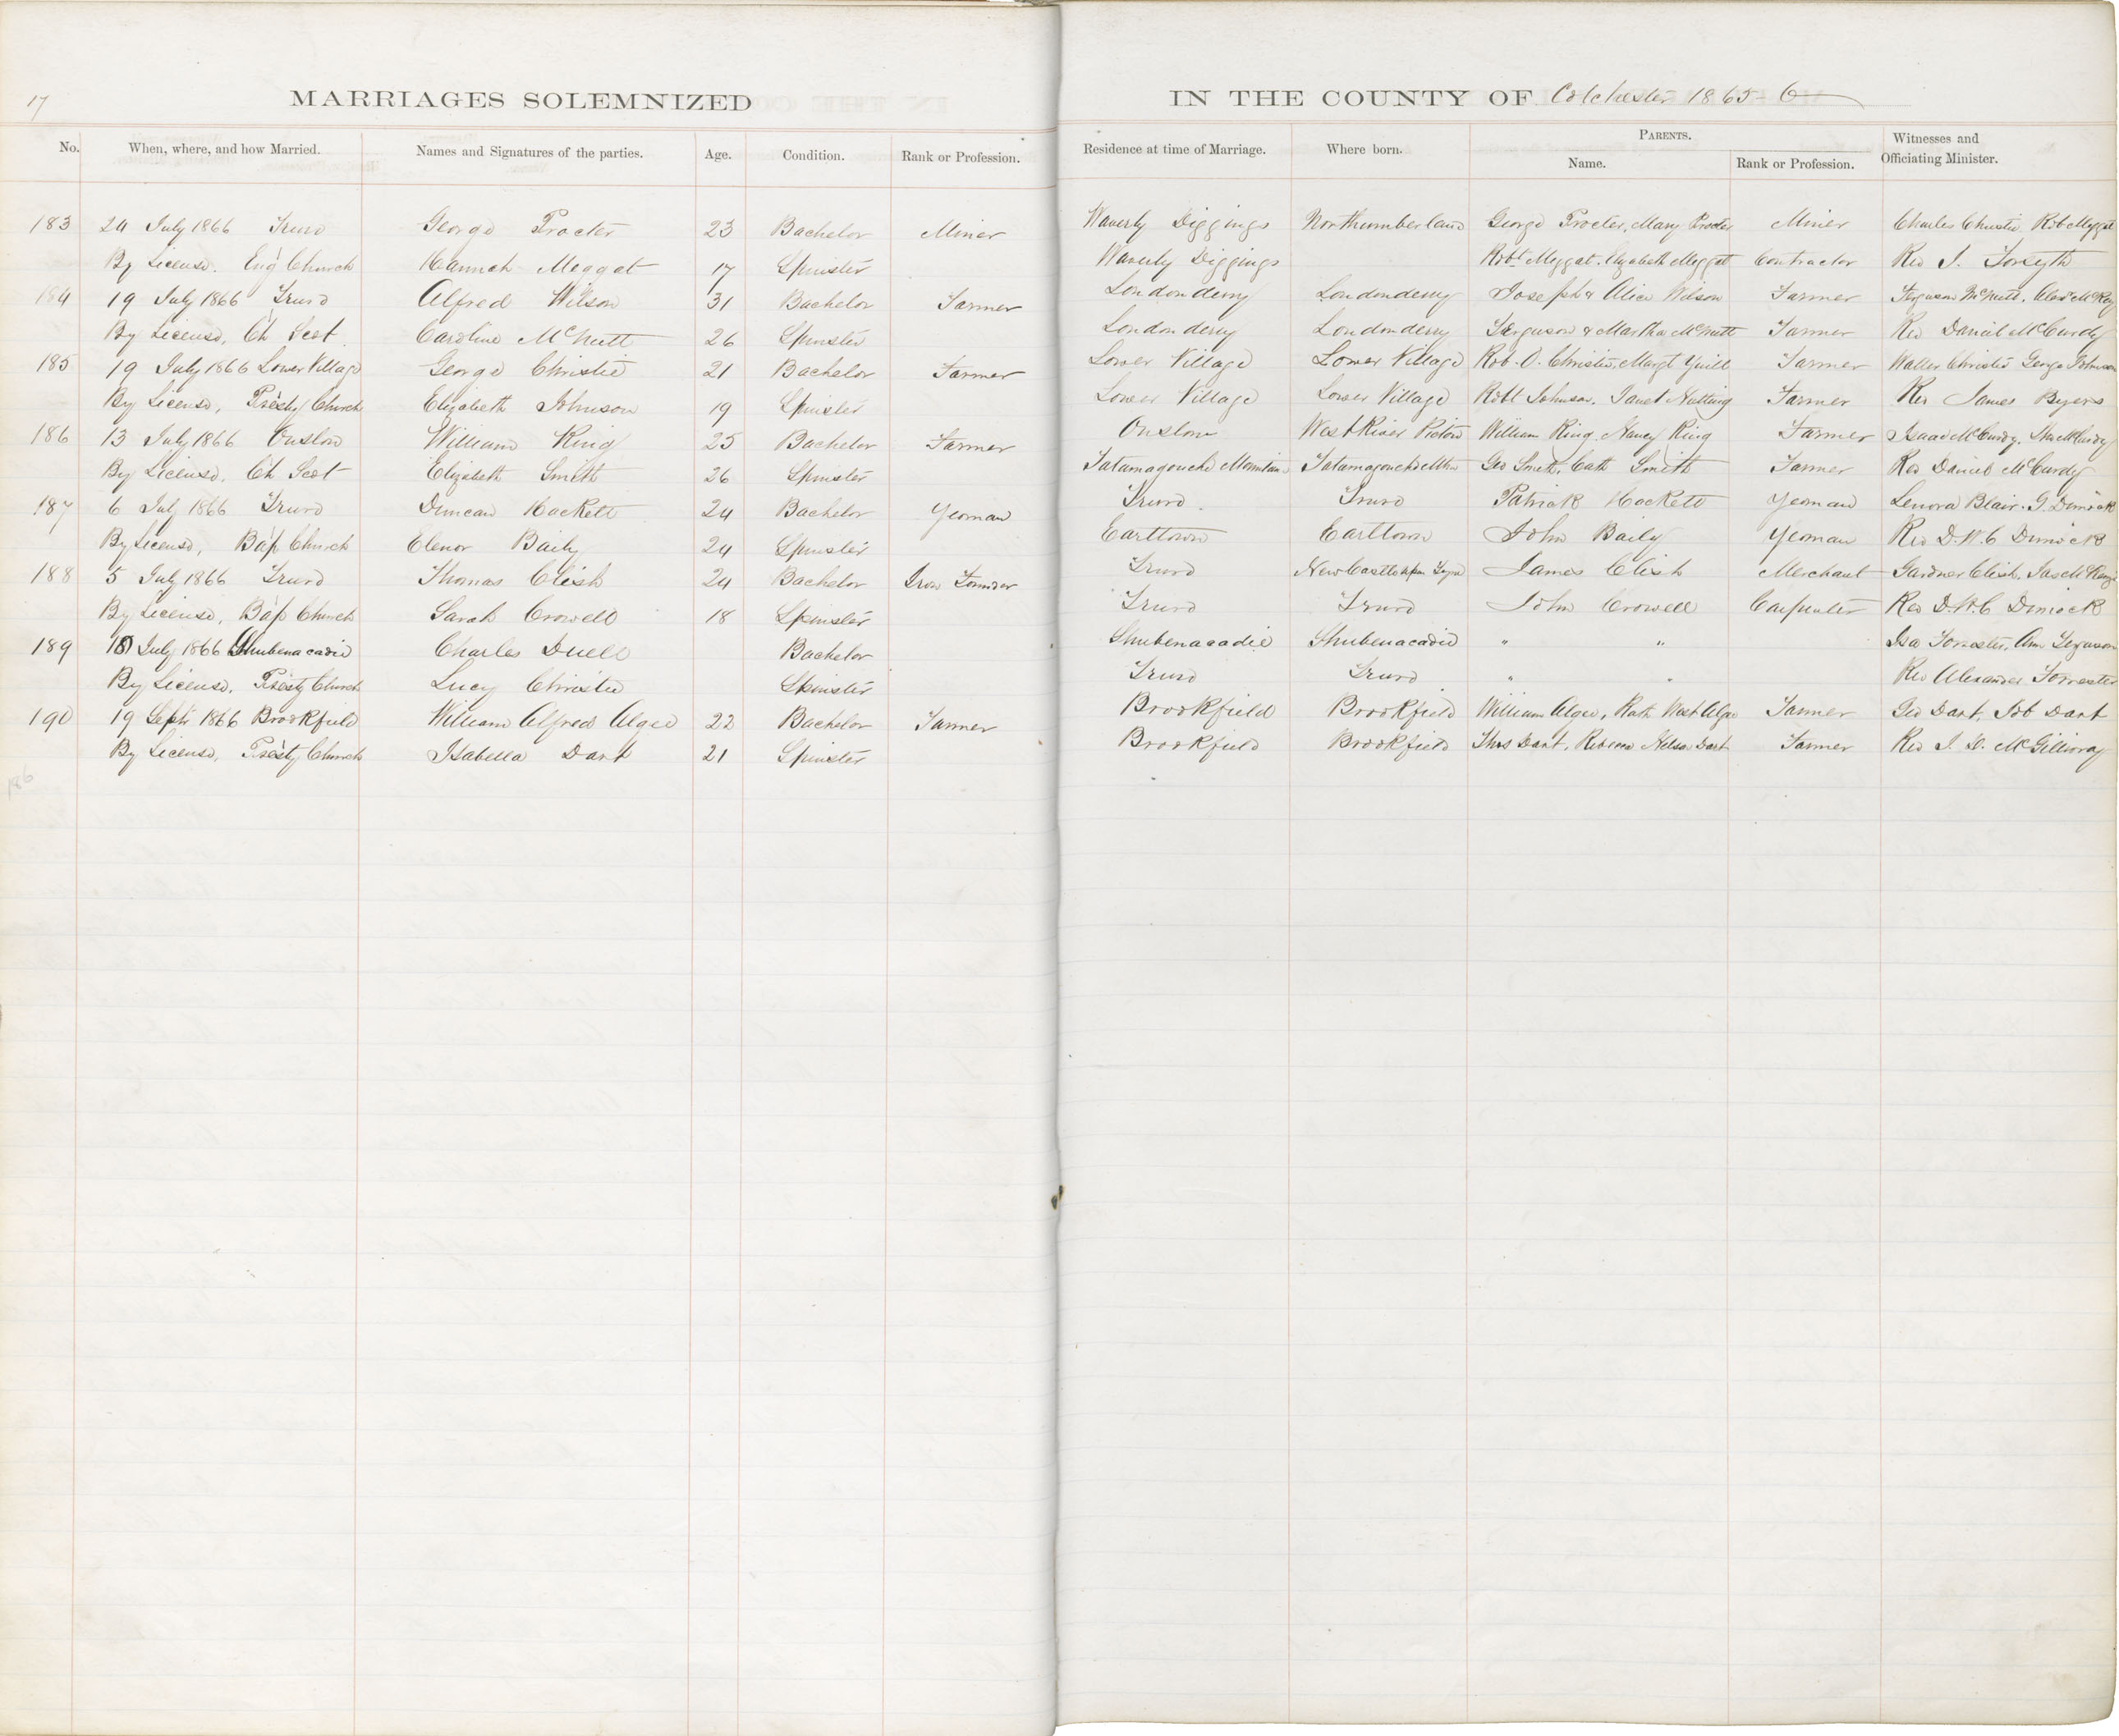 17
MARRIAGES SOLEMNIZED IN THE COUNTY OF Colchester 1865-6
No. When, where, and how Married. Names and Signatures of the parties. Age. Condition. Rank or Profession. Residence at time of Marriage. Where born. PARENTS. Name. Rank or Profession. Witnesses and Officiating Minister.
183 24 July 1866 Truro George Procter 23 Bachelor Miner Waverly Diggings Northumberland George Procter, Mary Procter Miner Charles Christie Rob Meggat
By License. Eng Church Hannah Meggat 17 Spinster Waverly Diggings Robt Meggat. Elizabeth Meggat Contractor Rev J. Forsyth
184 19 July 1866 Truro Alfred Wilson 31 Bachelor Farmer Londonderry Londonderry Joseph & Alice Wilson Farmer Ferguson McNutt.
By License, Ch Scot. Caroline McNutt 26 Spinster Londonderry Londonderry Ferguson & Martha McNutt Farmer Rev Daniel McCurdy
185 19 July 1866 Lower Village George Christie 21 Bachelor Farmer Lower Village Lower Village Rob. O. Christie, Margt Yuill Farmer Walter Christie George Johnson
By License, Presby Church Elizabeth Johnson 19 Spinster Lower Village Lower Village Robt Johnson. Janet Farmer Rev James Byers
186 13 July 1866 Onslow William King 25 Bachelor Farmer Onslow West River Pictou William King. Nancy King Farmer Isaac McCurdy.
By License. Ch Scot Elizabeth Smith 26 Spinster Tatamagouche Mountain Tatamagouche Mtn Geo Smith, Cath Smith Farmer Rev Daniel McCurdy
187 6 July 1866 Truro Duncan Hackett 24 Bachelor Yeoman Truro. Truro Patrick Hackett Yeoman Lenora Blair. G. Dimock
By License, Bap Church Elenor Baily 24 Spinster Earltown Earltown John Baily Yeoman Rev D. W. C Dimock
188 5 July 1866 Truro Thomas Clish 24 Bachelor Iron Founder Truro New Castle upon Tyne James Clish Merchant Gardner Clish,
By License, Bap Church Sarah Crowell 18 Spinster Truro Truro John Crowell Carpenter Rev D. W. C Dimock
189 18 July 1866 Shubenacadie Charles Duell Bachelor Shubenacadie Shubenacadie " " Isa Forrester, Ann Ferguson
By License. Presby Church Lucy Christie Spinster Truro Truro " " Rev Alexander Forrester
190 19 Sept 1866 Brookfield William Alfred Algeo 22 Bachelor Farmer Brookfield Brookfield William Algeo, Ruth West Algeo Farmer Geo Dart, Job Dart
By License, Presby Church Isabella Dart 21 Spinster Brookfield Brookfield Thos Dart, Nelson Dart Farmer Rev J. D. McGillivray
186